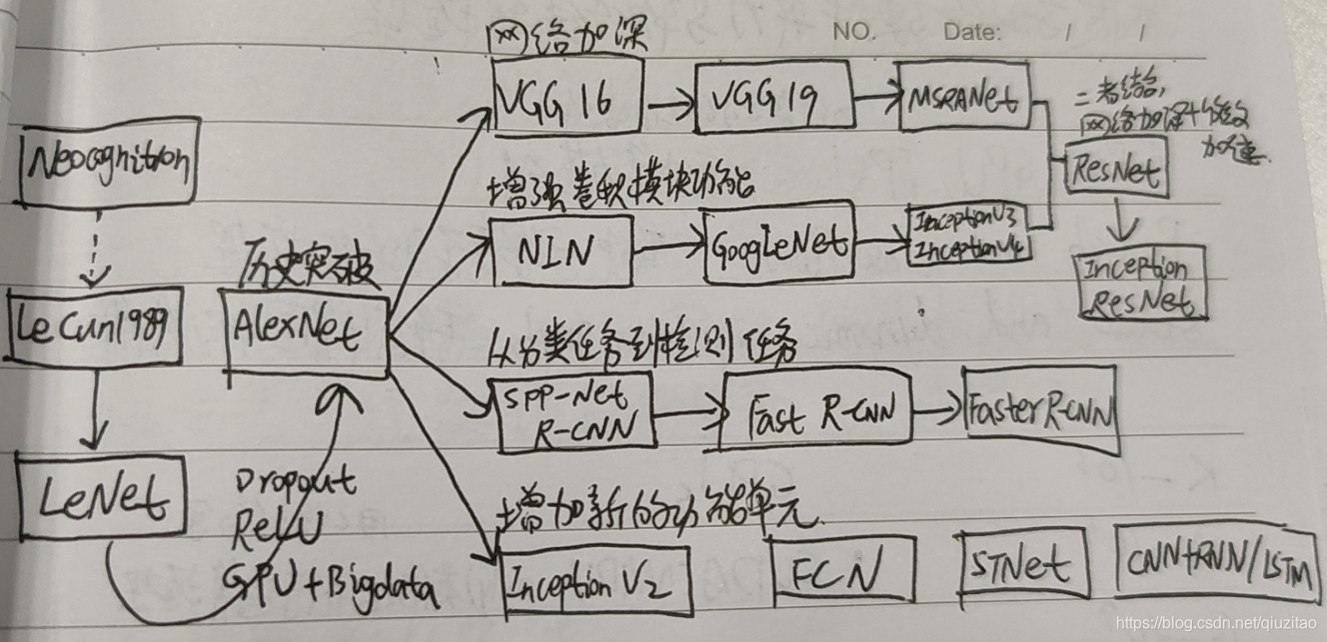 NO. Date: / /
网络加深
VGG 16
VGG 19
MSRANet
二者结合,
网络加深+
加速
ResNet
Inception
ResNet
Neocognition
LeCun1989
LeNet
历史突破
AlexNet
Dropout
ReLU
GPU+Bigdata
增强卷积模块功能
NIN
GoogLeNet
InceptionV3
InceptionV4
从分类任务到检测任务
SPP-Net
R-CNN
Fast R-CNN
Faster R-CNN
增加新的功能单元.
Inception V2
FCN
STNet
CNN+RNN/LSTM
https://blog.csdn.net/qiuzitao